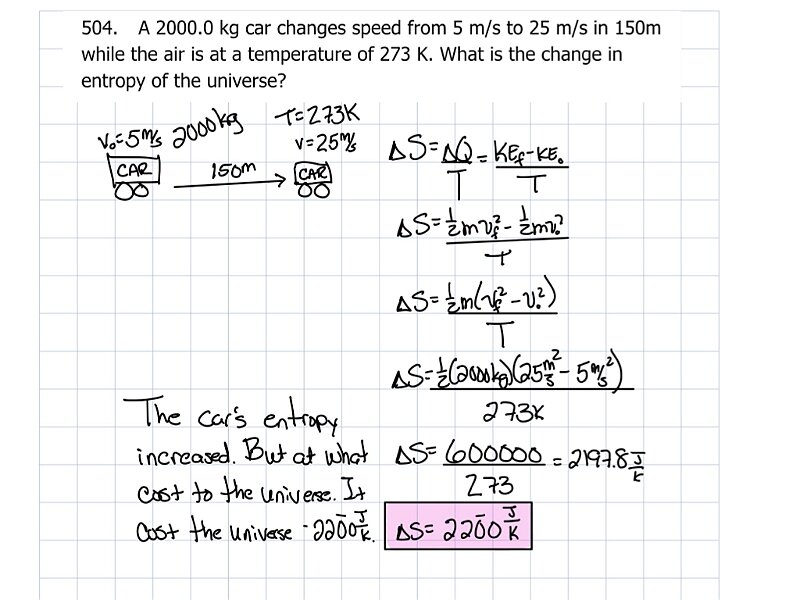 504. A 2000.0 kg car changes speed from 5 m/s to 25 m/s in 150m
while the air is at a temperature of 273 K. What is the change in
entropy of the universe?
V₀=5 m/s 2000kg T=273K
v=25 m/s
CAR 150m CAR
ΔS = ΔQ/T = (KE_f - KE₀)/T
ΔS = (½mv_f² - ½mv₀²)/T
ΔS = ½m(v_f² - v₀²)/T
ΔS = ½(2000kg)(25 m/s² - 5 m/s²)/273K
ΔS = 600000/273 = 2197.8 J/K
ΔS = 220̄0 J/K
The car's entropy
increased. But at what
cost to the universe. It
cost the universe -220̄0 J/K.